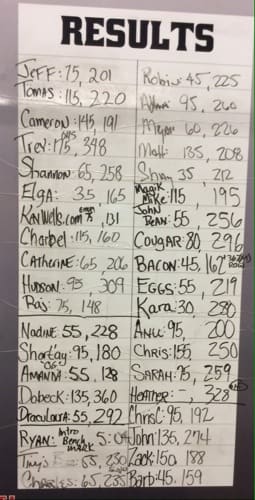 RESULTS
JEFF: 75, 201
TOMAS: 115, 220
Cameron: 145, 191
Trev: 175, 348
Shannon: 65, 258
ELGA: 35, 165
KenWells.com 75, 131
Charbel: 115, 160
CATHERINE: 65, 206
HUDSON: 95 309
Raj: 75, 148
NADINE: 55, 228
Shortay: 95, 180
AMANDA: 55, 128
OG
Dobeck: 135, 360
Draculaura: 55, 292
RYAN: Intro Bench MARK 5:04
Tiny's 65, 230
Charles: 65, 235
Robin: 45, 225
95, 260
Megan 60, 226
Matt: 135, 208
35, 212
Magik Mike: 115, 195
JOHN DEAN: 55, 256
COUGAR: 80, 296
BACON: 45, 162
EGGS: 55, 219
Kara: 30, 280
95, 200
Chris: 155, 250
SARAH: 75, 259
HEATHER: , 328
ChrisC: 95, 192
John: 135, 274
Zack: 150, 188
Barb: 45, 159